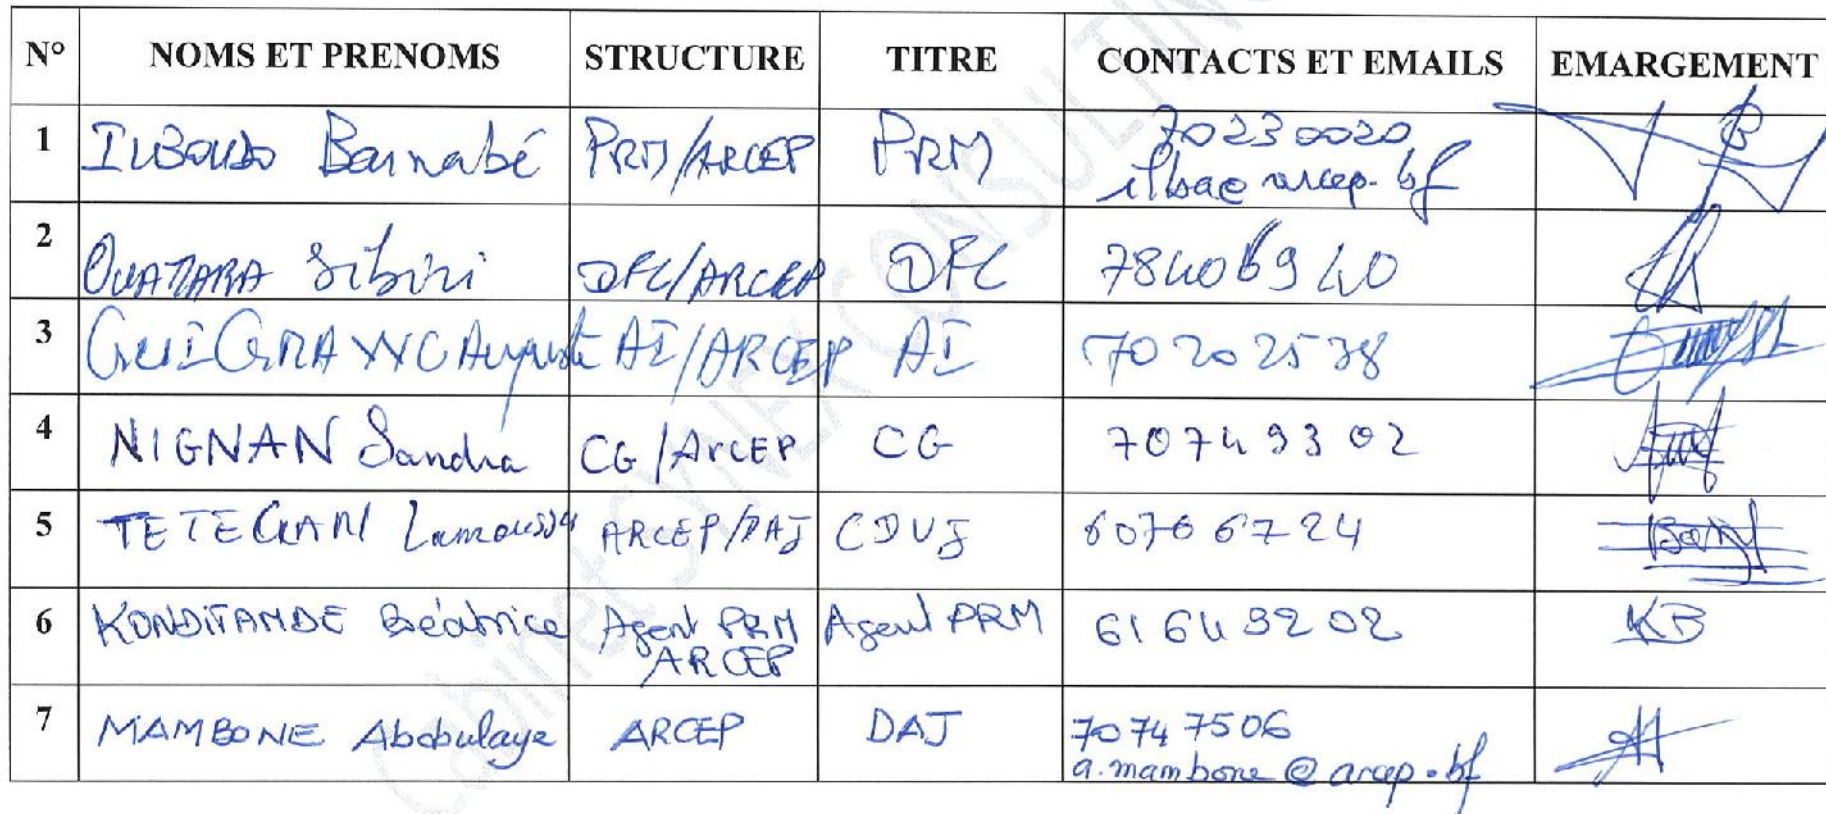 N° NOMS ET PRENOMS STRUCTURE TITRE CONTACTS ET EMAILS EMARGEMENT
1 ILBOUDO Barnabé PRM/ARCEP PRM 70230020
ilba@arcep.bf
2 OUATTARA Sibiri DFC/ARCEP DFC 78406940
3 GUIGRA WC Auguste AI/ARCEP AI 70202538
4 NIGNAN Sandra CG/ARCEP CG 70749302
5 TETEGAN Lamoussa ARCEP/DAJ CDVJ 60766724
6 KONDITAMDE Béatrice Agent PRM Agent PRM 61649202 KB
ARCEP
7 MAMBONE Abdoulaye ARCEP DAJ 70747506
a.mambone@arcep.bf
Cabinet SYNEX CONSULTING